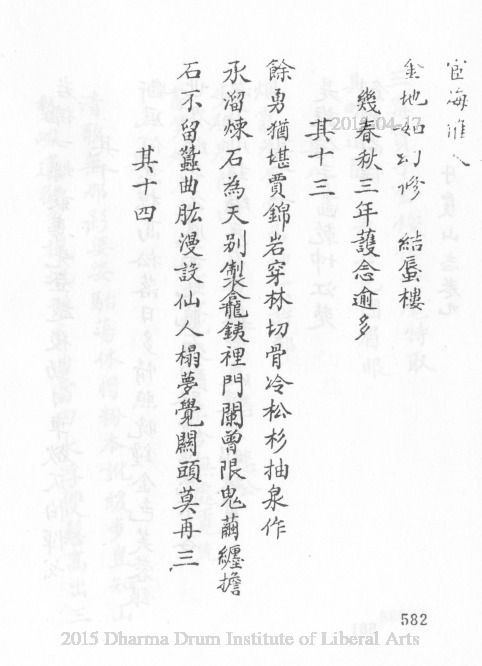 宦海誰人
金地如幻修 結蜃樓
幾春秋三年護念逾多
其十三
餘勇猶堪賈錦岩穿林切骨冷松杉抽泉作
承溜煉石為天別製龕銕裡門闌曾限鬼繭纏擔
石不留蠶曲肱漫設仙人榻夢覺闗頭莫再三
其十四
2012-04-17
582
2015 Dharma Drum Institute of Liberal Arts